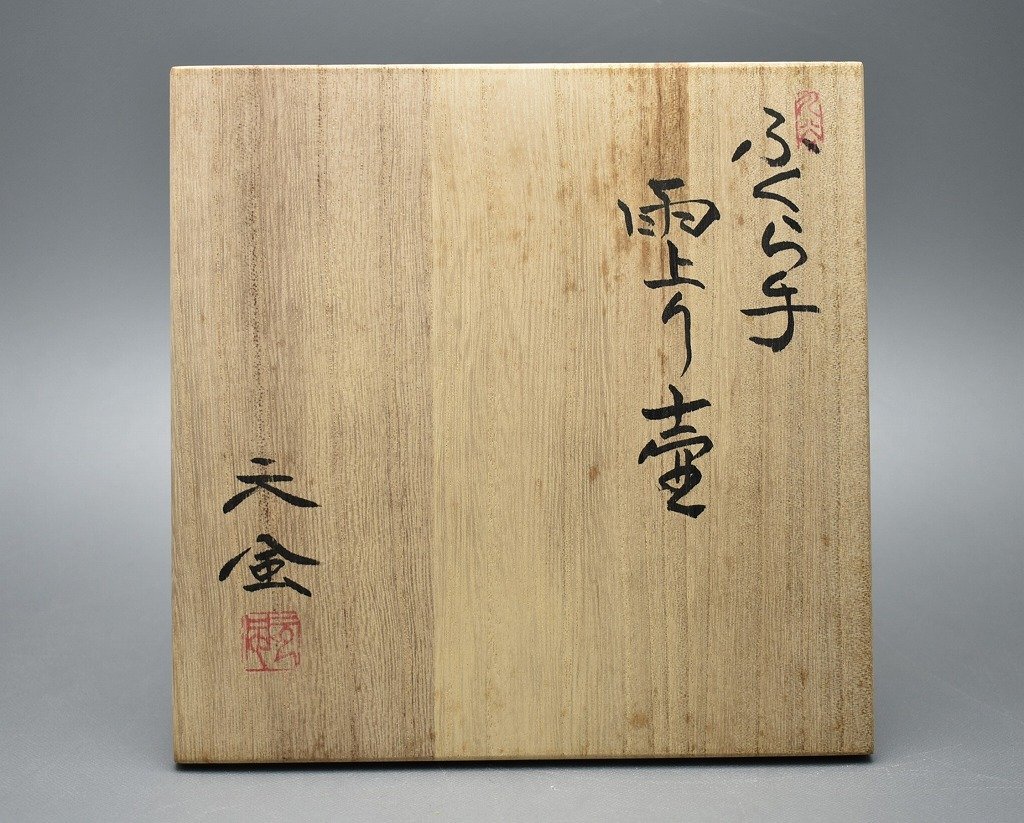 ふくら手
雨上り壷
元金